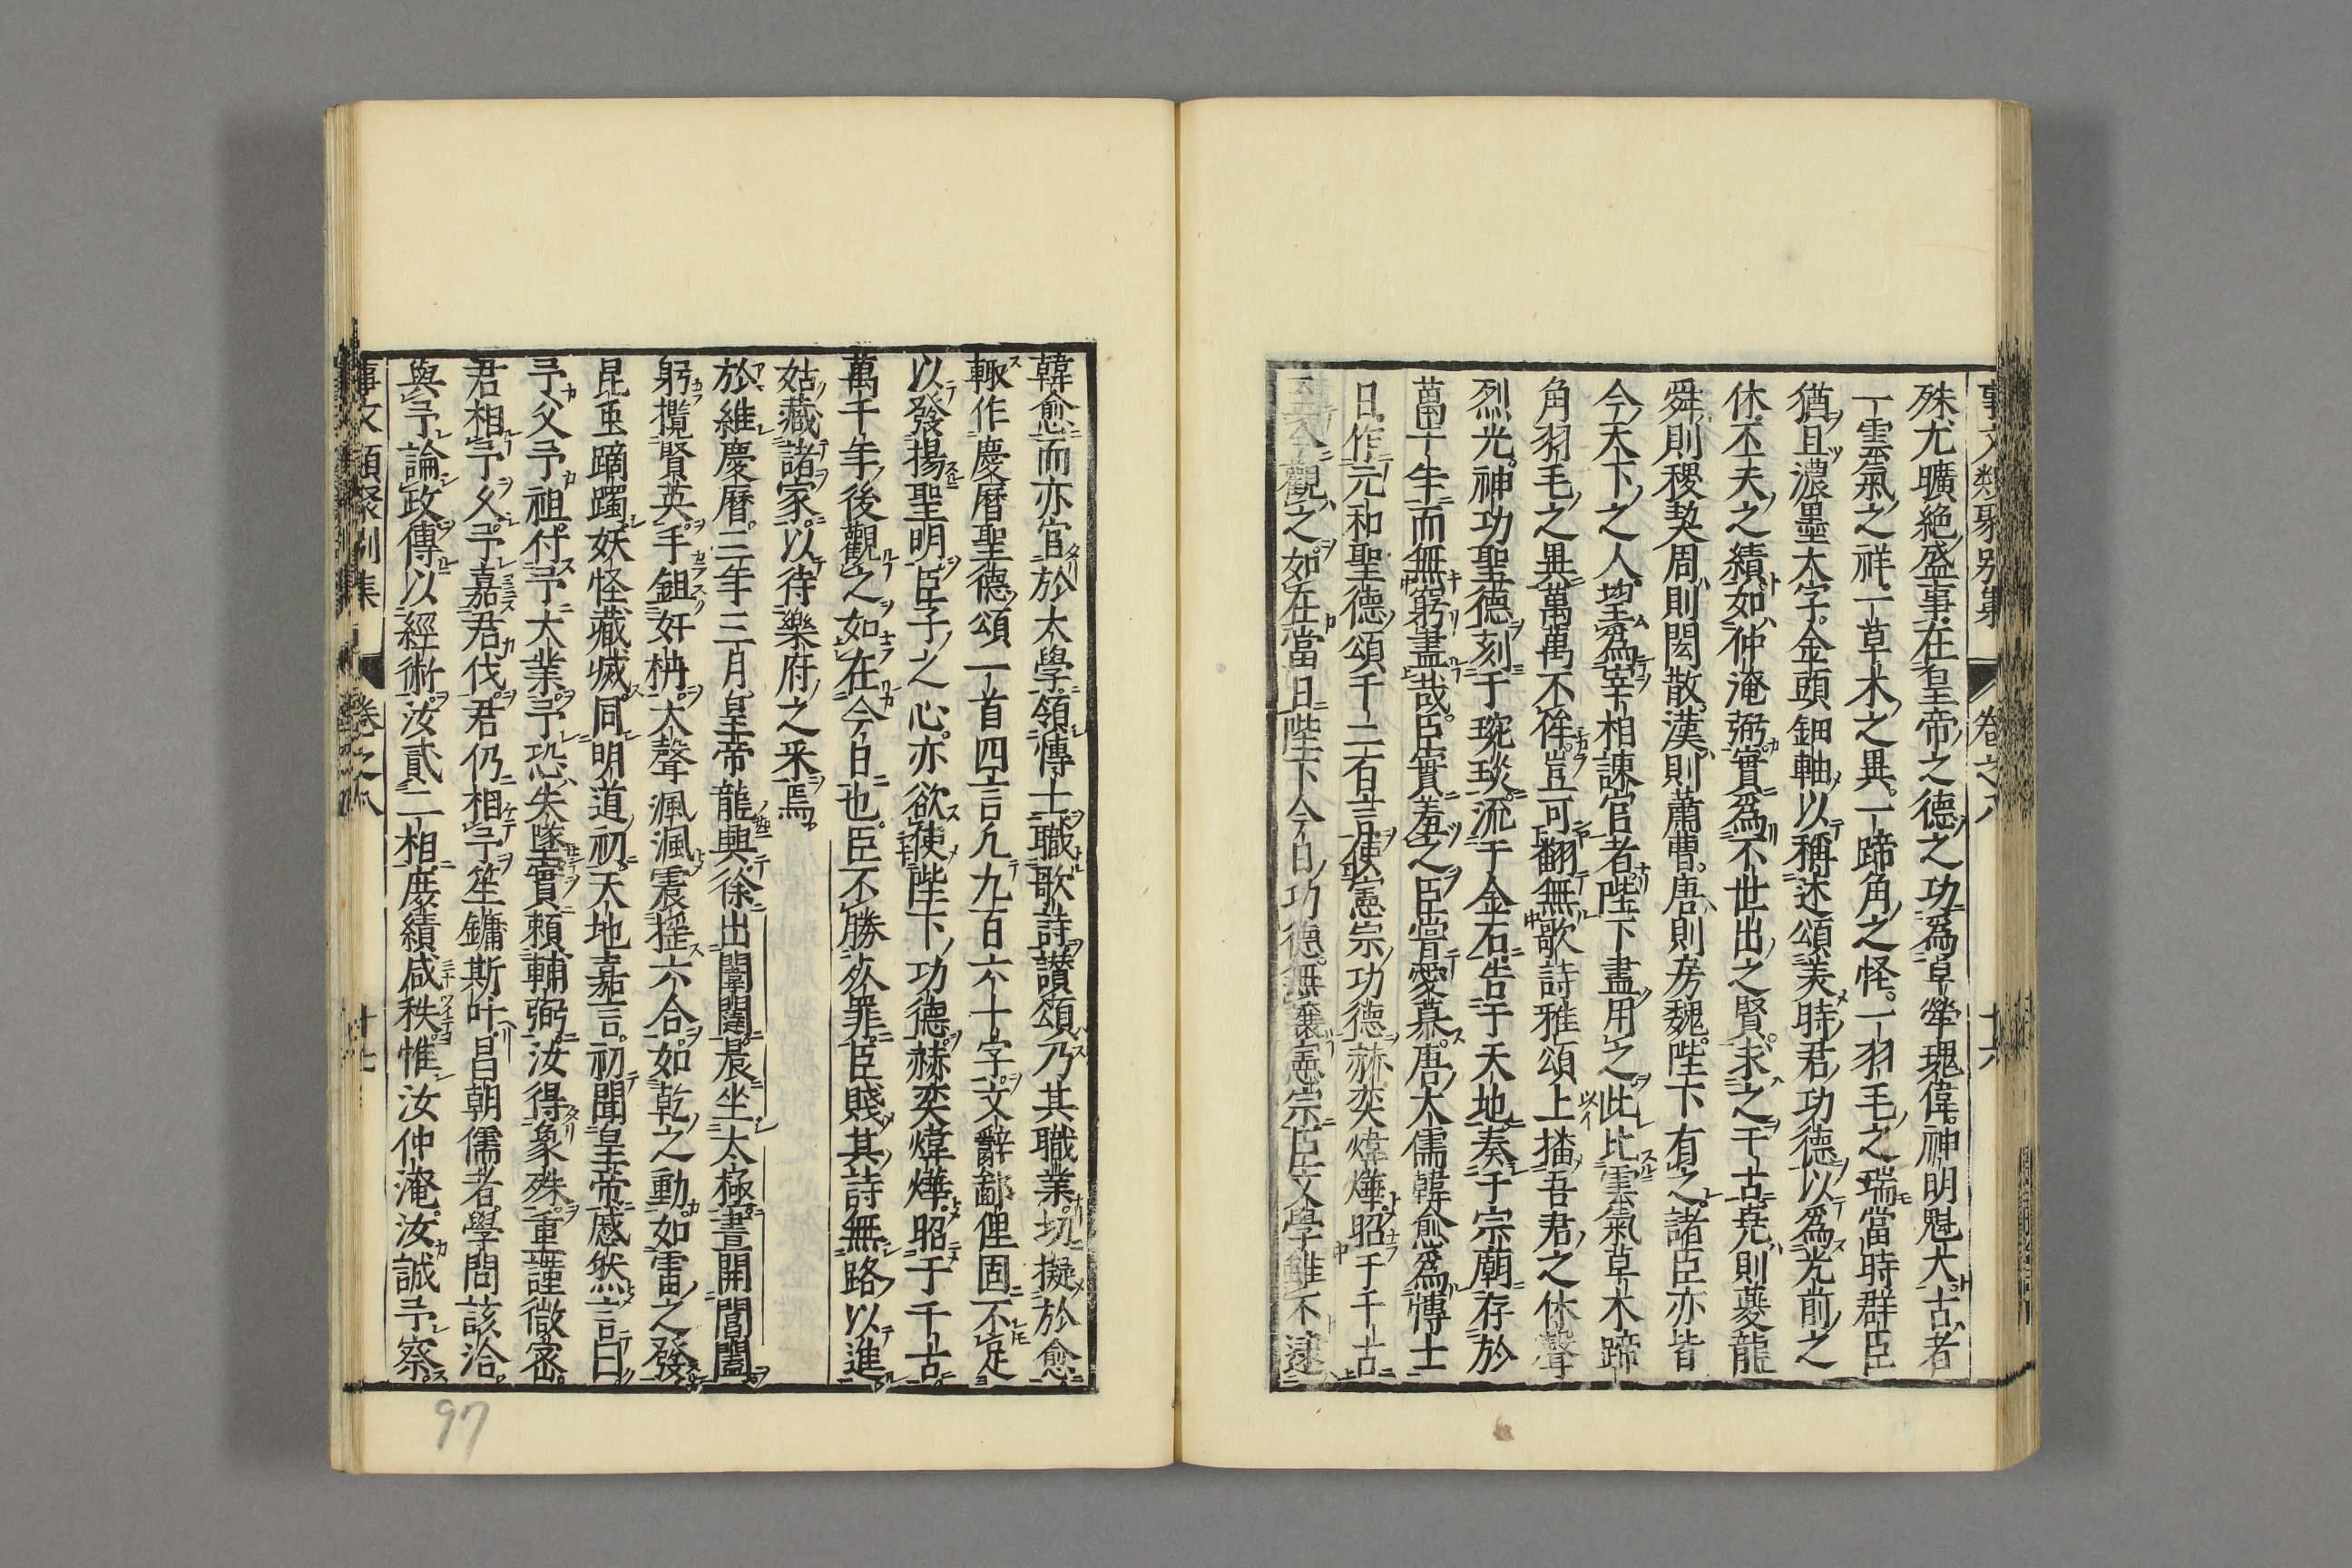 事文類聚別集 卷之八 十六
殊尤曠絶盛事在皇帝之德之功爲卓犖瑰偉神明魁大古者
一雲氣之祥一草木之異一蹄角之怪一羽毛之瑞當時群臣
猶且濃墨大字金頭鈿軸以稱述頌美時君功德以爲光前之
休丕夫之績如仲淹弼實爲不世出之賢求之千古堯則夔龍
舜則稷契周則閎散漢則蕭曹唐則房魏陛下有之諸臣亦皆
今天下之人望爲宰相諫官者陛下盡用之此比雲氣草木蹄
角羽毛之異萬萬不侔豈可翻無歌詩雅頌上播吾君之休聲
烈光神功聖德刻于琬琰流于金石告于天地奏于宗廟存於
萬千年而無窮盡哉臣實羞之臣嘗愛慕唐大儒韓愈爲博士
日作元和聖德頌千二百言使憲宗功德赫奕煒燁昭于千古
至今觀之如在當日陛下今日功德無讓憲宗臣文學雖不逮
韓愈而亦官於太學領博士職歌詩讃頌乃其職業切擬於愈
輙作慶曆聖德頌一首四言凡九百六十字文辭鄙俚固不足
以發揚聖明臣子之心亦欲使陛下功德赫奕煒燁昭于千古
萬千年後觀之如在今日也臣不勝死罪臣賤其詩無路以進
姑藏諸家以待樂府之采焉
於維慶曆三年三月皇帝龍興徐出闈闥晨坐太極晝開閶闔
躬攬賢英手鉏奸枿大聲渢渢震揺六合如乾之動如雷之發
昆䖝蹢躅妖怪藏滅同明道初天地嘉言初聞皇帝慼然言曰
予父予祖付予大業予恐失墜實頼輔弼汝得象殊重謹微密
君相予父予嘉君伐君仍相予笙鏞斯叶昌朝儒者學問該洽
與予論政傳以經術汝貳二相庶績咸秩惟汝仲淹汝誠予察
事文類聚別集 卷之八 十七
97